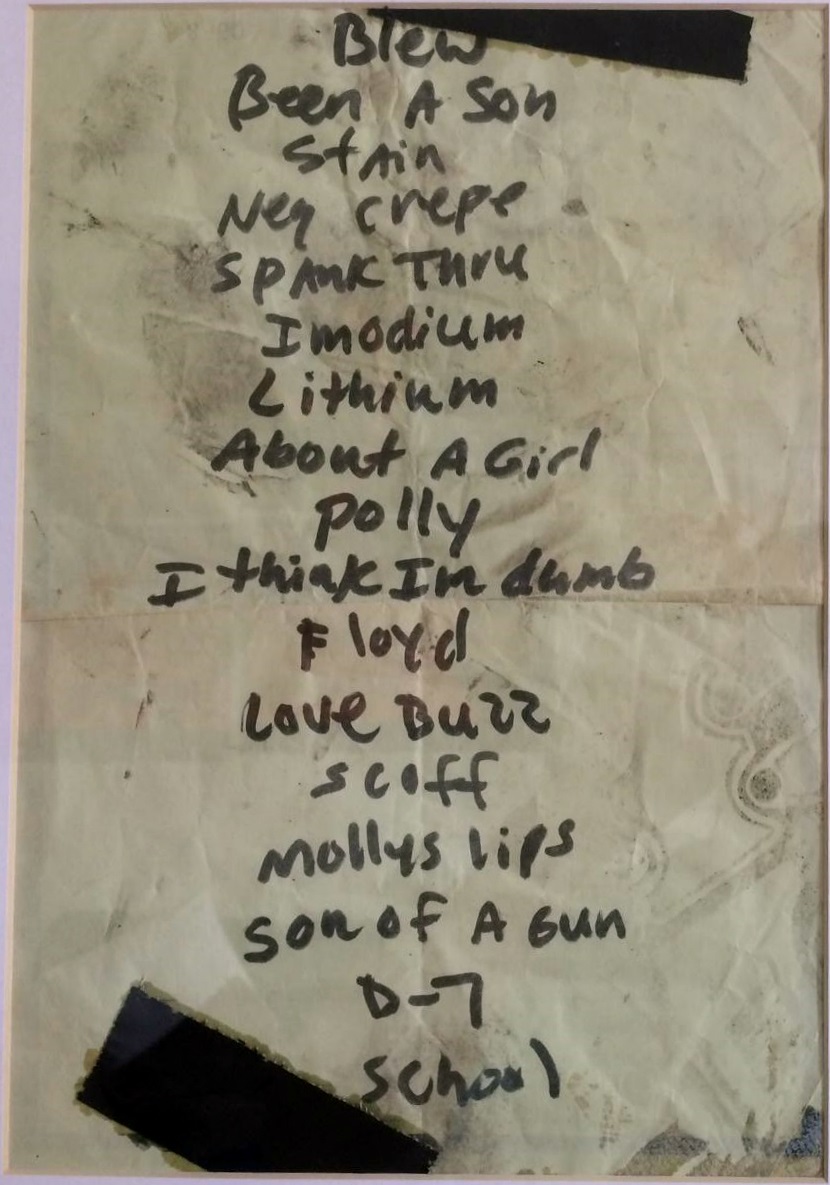 Blew
Been A Son
Stain
Neg crepe
Spank Thru
Imodium
Lithium
About A Girl
Polly
I think Im dumb
Floyd
Love Buzz
Scoff
Mollys Lips
Son of A Gun
D-7
School